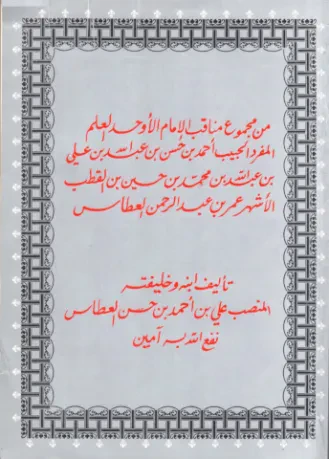 من مجموع مناقب الإمام الأوحد العلم
المفرد الحبيب أحمد بن حسن بن عبد الله بن علي
بن عبد الله بن محمد بن حسين بن القطب
الأشهر عمر بن عبد الرحمن العطاس
تأليف ابنه وخليفته
المنصب علي بن أحمد بن حسن العطاس
نفع الله به آمين